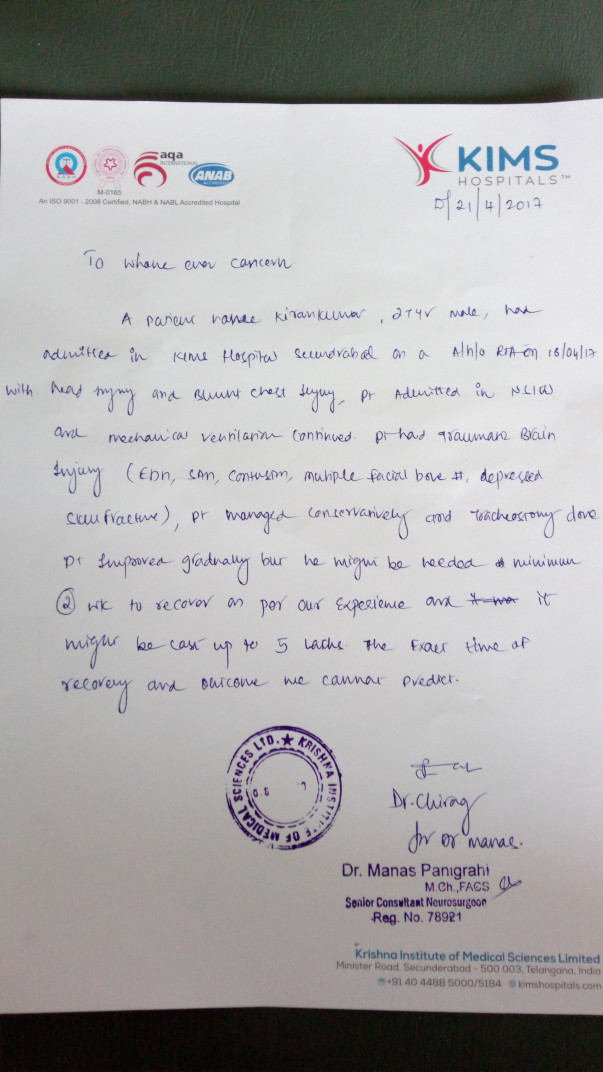 aqa
INTERNATIONAL
ANAB
ACCREDITED
M-0165
An ISO 9001 - 2008 Certified, NABH & NABL Accredited Hospital
KIMS
HOSPITALS™
D/21/4/2017
To whome ever concern
A patient name Kirankumar, 27yr male, had
admitted in KIMS Hospital Secundrabad on a A/h/o RTA on 18/04/17
with Head Injury and Blunt chest Injury, pt Admitted in NSICU
and mechanical ventilation continued. pt had traumatic Brain
Injury (EDH, SAH, Contusion, multiple facial bone #, depressed
skull fracture), pt managed conservatively and Tracheostomy done
pt Improved gradually but he might be needed minimum
② wk to recover as per our Experience and it
might be cost up to 5 Lachs. The Exact time of
recovery and outcome we cannot predict.
KRISHNA INSTITUTE OF MEDICAL SCIENCES LTD. ★
Dr. Chirag
for Dr manas.
Dr. Manas Panigrahi
M.Ch.,FACS
Senior Consultant Neurosurgeon
Reg. No. 78921
Krishna Institute of Medical Sciences Limited
Minister Road, Secunderabad - 500 003, Telangana, India
+91 40 4488 5000/5184 kimshospitals.com